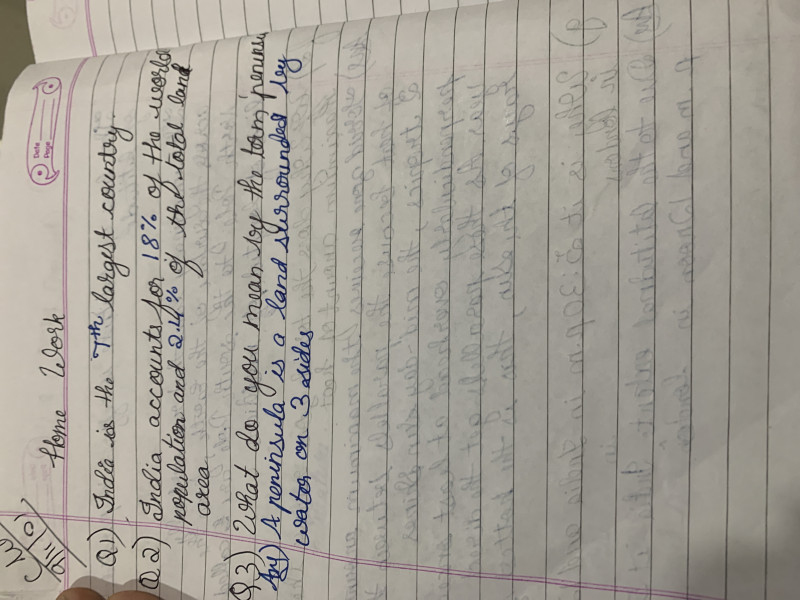 Date
Page
Home Work
Q1) India is the 7th largest country.
Q2) India accounts for 18% of the world
population and 2.4% of the total land
area
Q3) What do you mean by the term peninsu
Ans) A peninsula is a land surrounded by
water on 3 sides